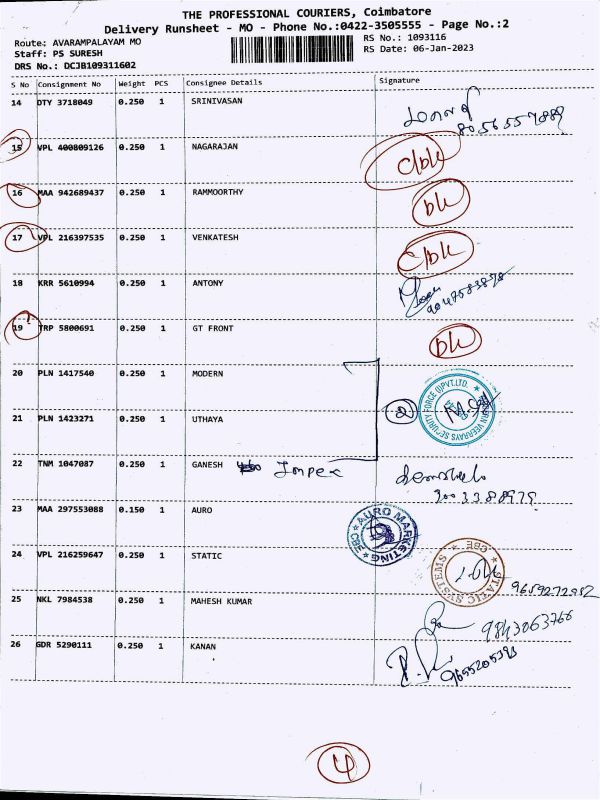 THE PROFESSIONAL COURIERS, Coimbatore
Delivery Runsheet - MO - Phone No.:0422-3505555 - Page No.:2
Route: AVARAMPALAYAM MO
RS No.: 1093116
Staff: PS SURESH
RS Date: 06-Jan-2023
DRS No.: DCJB109311602
S No Consignment No Weight PCS Consignee Details Signature
14 DTY 3718049 0.250 1 SRINIVASAN
8056557889
15 VPL 400809126 0.250 1 NAGARAJAN
16 MAA 942689437 0.250 1 RAMMOORTHY
17 VPL 216397535 0.250 1 VENKATESH
18 KRR 5610994 0.250 1 ANTONY
19 TRP 5800691 0.250 1 GT FRONT
20 PLN 1417540 0.250 1 MODERN
21 PLN 1423271 0.250 1 UTHAYA
2
22 TNM 1047087 0.250 1 GANESH Impex
23 MAA 297553088 0.150 1 AURO
AURO MARKETING CBE
24 VPL 216259647 0.250 1 STATIC
STATIC SYSTEMS CBE
25 NKL 7984538 0.250 1 MAHESH KUMAR
9843063766
26 GDR 5290111 0.250 1 KANAN
4